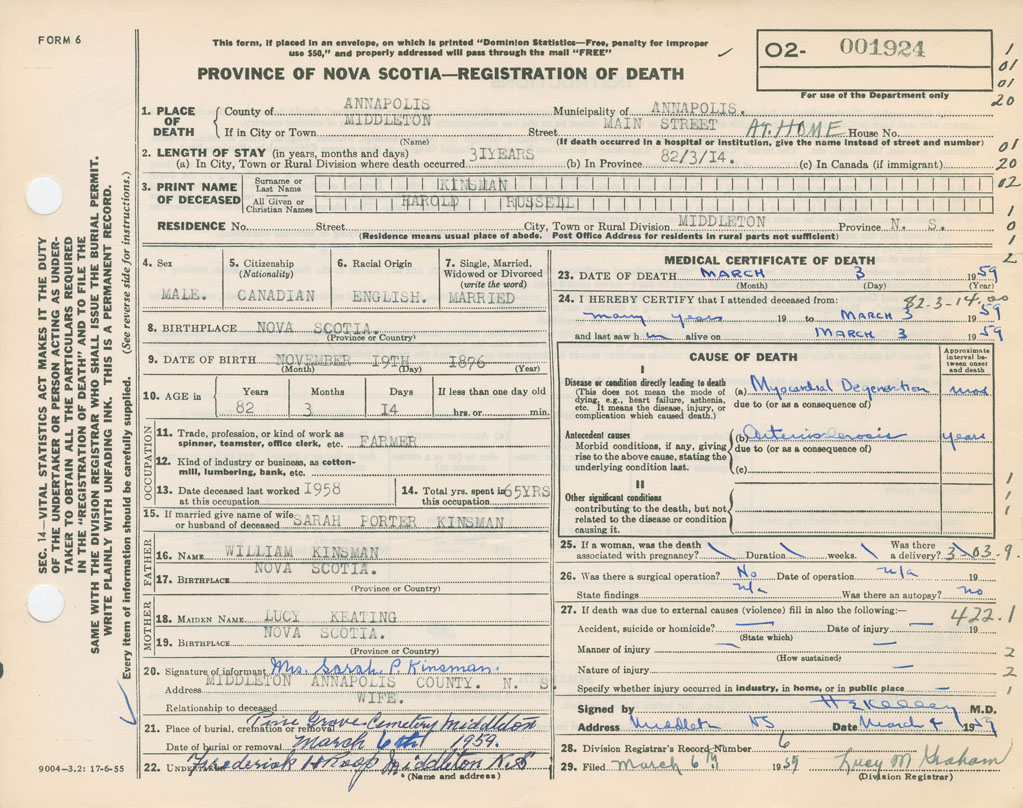 FORM 6
This form, if placed in an envelope, on which is printed "Dominion Statistics—Free, penalty for improper
use $50," and properly addressed will pass through the mail "FREE"
O2- 001924
For use of the Department only
PROVINCE OF NOVA SCOTIA—REGISTRATION OF DEATH
1
01
01
20
01
20
02
1
0
1
2
SEC. 14—VITAL STATISTICS ACT MAKES IT THE DUTY
OF THE UNDERTAKER OR PERSON ACTING AS UNDER-
TAKER TO OBTAIN ALL THE PARTICULARS REQUIRED
IN THE "REGISTRATION OF DEATH" AND TO FILE THE
SAME WITH THE DIVISION REGISTRAR WHO SHALL ISSUE THE BURIAL PERMIT.
WRITE PLAINLY WITH UNFADING INK. THIS IS A PERMANENT RECORD.
Every item of information should be carefully supplied. (See reverse side for instructions.)
1. PLACE OF DEATH
County of ANNAPOLIS Municipality of ANNAPOLIS.
If in City or Town MIDDLETON Street MAIN STREET AT HOME House No.
(Name) (If death occurred in a hospital or institution, give the name instead of street and number)
2. LENGTH OF STAY (in years, months and days)
(a) In City, Town or Rural Division where death occurred 31YEARS (b) In Province 82/3/14. (c) In Canada (if immigrant)
3. PRINT NAME OF DECEASED
Surname or Last Name KINSMAN
All Given or Christian Names HAROLD RUSSELL
RESIDENCE No. Street City, Town or Rural Division MIDDLETON Province N. S.
(Residence means usual place of abode. Post Office Address for residents in rural parts not sufficient)
4. Sex MALE.
5. Citizenship (Nationality) CANADIAN
6. Racial Origin ENGLISH.
7. Single, Married, Widowed or Divorced (write the word) MARRIED
8. BIRTHPLACE NOVA SCOTIA.
(Province or Country)
9. DATE OF BIRTH NOVEMBER 19TH 1876
(Month) (Day) (Year)
10. AGE in Years Months Days If less than one day old
82 3 14 hrs. or min.
OCCUPATION
11. Trade, profession, or kind of work as
spinner, teamster, office clerk, etc. FARMER
12. Kind of industry or business, as cotton-
mill, lumbering, bank, etc.
13. Date deceased last worked at this occupation. 1958
14. Total yrs. spent in this occupation 65YRS
15. If married give name of wife
or husband of deceased SARAH PORTER KINSMAN
FATHER
16. NAME WILLIAM KINSMAN
17. BIRTHPLACE NOVA SCOTIA.
(Province or Country)
MOTHER
18. MAIDEN NAME LUCY KEATING
19. BIRTHPLACE NOVA SCOTIA.
(Province or Country)
20. Signature of informant Mrs. Sarah P. Kinsman.
Address MIDDLETON ANNAPOLIS COUNTY. N. S.
Relationship to deceased WIFE.
21. Place of burial, cremation or removal Pine Grove Cemetery Middleton
Date of burial or removal March 6th 1959.
22. UNDERTAKER Frederick Middleton N.S.
(Name and address)
9004-3.2: 17-6-55
MEDICAL CERTIFICATE OF DEATH
23. DATE OF DEATH MARCH 3 1959
(Month) (Day) (Year)
82-3-14.00
24. I HEREBY CERTIFY that I attended deceased from:
many years 19 to MARCH 3 1959
and last saw h im alive on MARCH 3 1959
CAUSE OF DEATH
Approximate interval between onset and death
I
Disease or condition directly leading to death
(This does not mean the mode of
dying, e.g., heart failure, asthenia,
etc. It means the disease, injury, or
complication which caused death.)
(a) Myocardial Degeneration mos
due to (or as a consequence of)
Antecedent causes
Morbid conditions, if any, giving
rise to the above cause, stating the
underlying condition last.
(b) Arteriosclerosis years
due to (or as a consequence of)
(c)
II
Other significant conditions
contributing to the death, but not
related to the disease or condition
causing it.
1
1
1
25. If a woman, was the death
associated with pregnancy? Duration weeks. Was there a delivery? 3 03-9.
26. Was there a surgical operation? No Date of operation n/a 19
State findings n/a Was there an autopsy? no
27. If death was due to external causes (violence) fill in also the following:—
422.1
Accident, suicide or homicide? Date of injury 19
(State which)
Manner of injury 2
(How sustained)
Nature of injury 2
Specify whether injury occurred in industry, in home, or in public place 1
Signed by H E Kelley M.D.
Address Middleton NS Date March 4 1959
28. Division Registrar's Record Number 6
29. Filed March 6th 1959 Lucy M Graham
(Division Registrar)